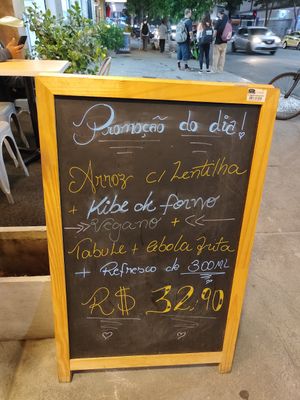 Promoção do dia!
Arroz c/ Lentilha
+ Kibe de forno
vegano +
Tabule + Cebola frita
+ Refresco de 300ML
R$ 32,90